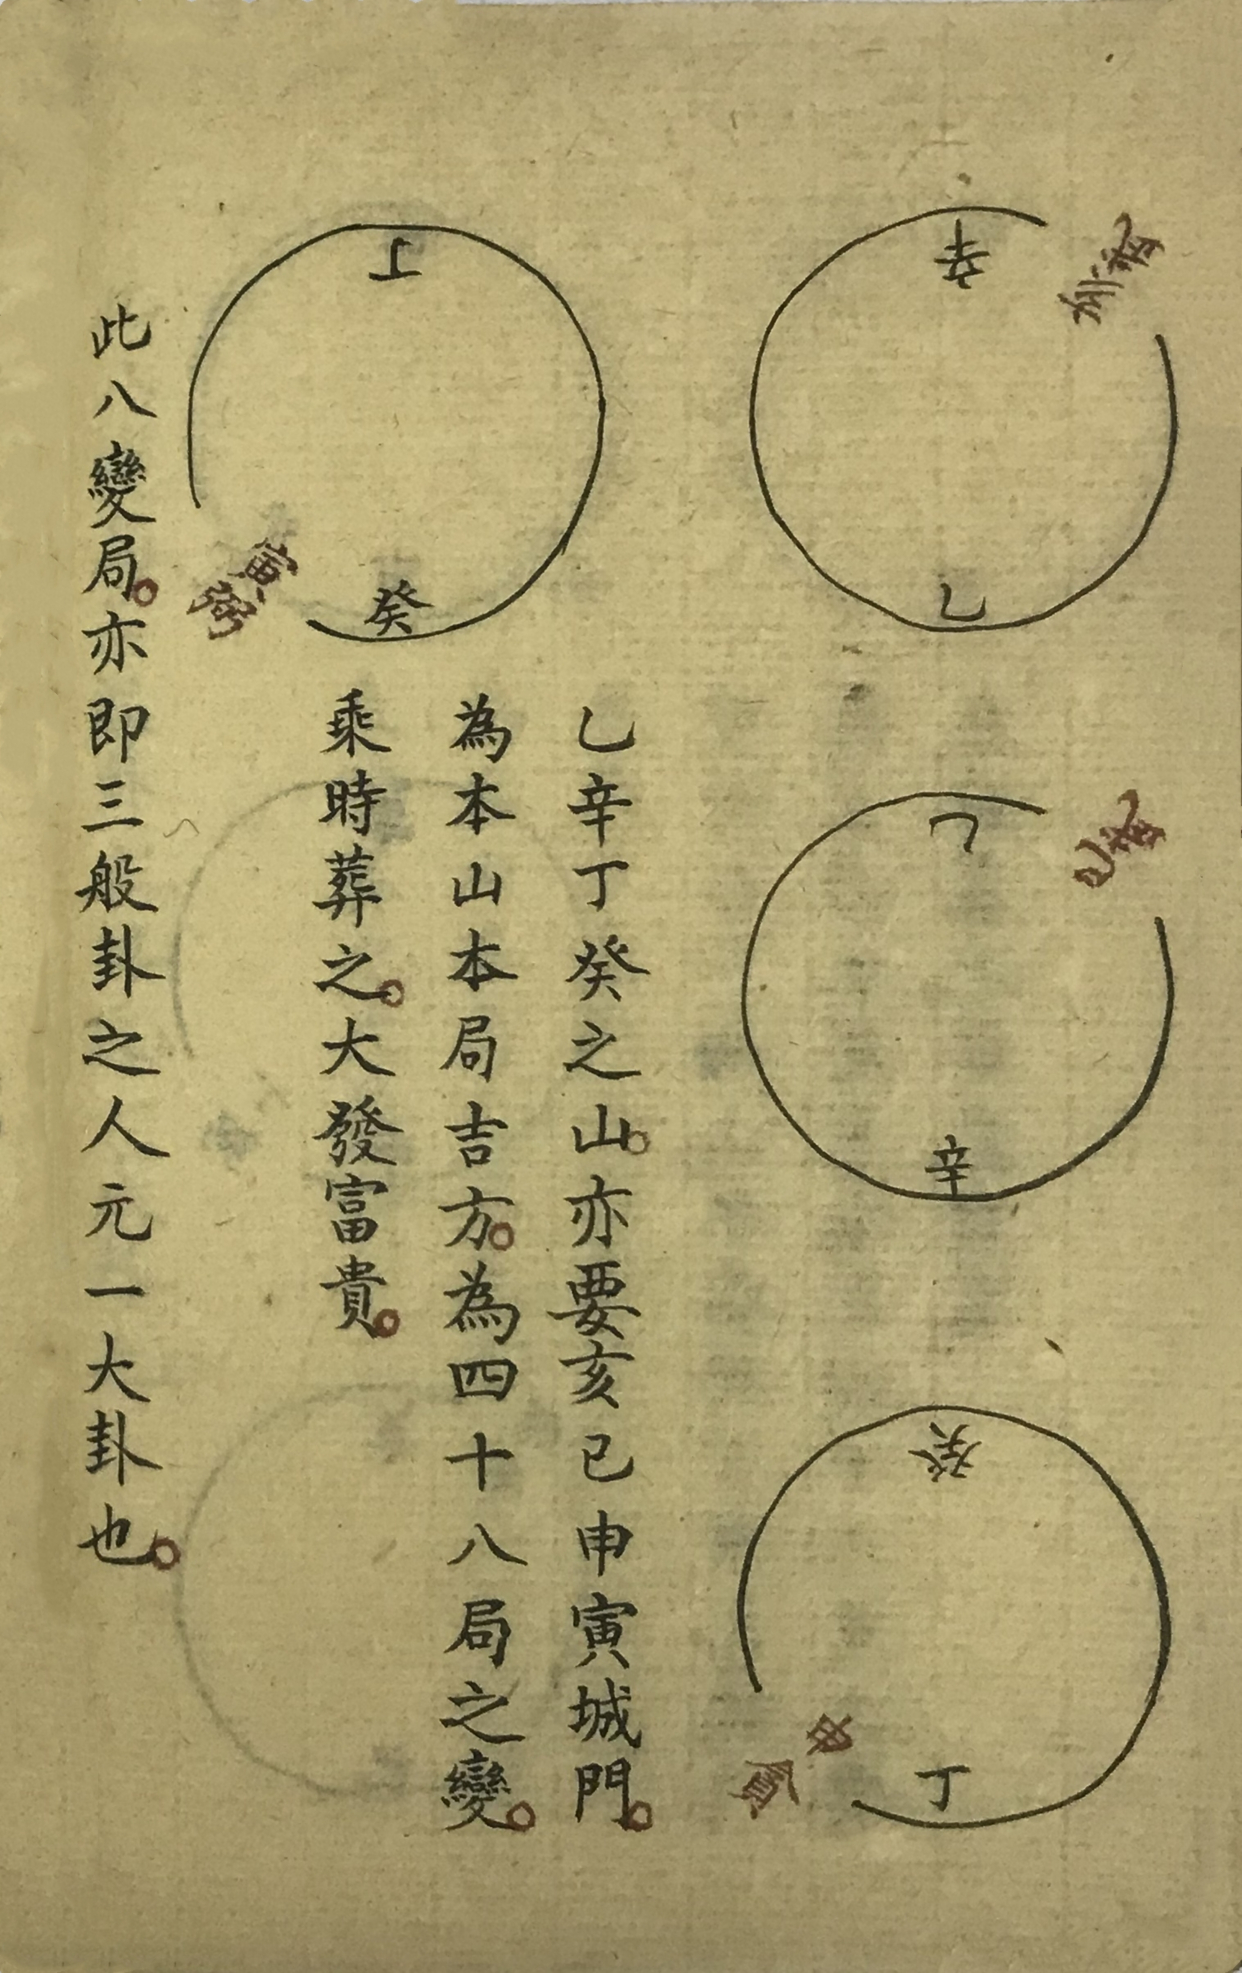 辛
亥
乙
乙
巳
辛
癸
申
貪
丁
丁
癸
寅
弼
乙辛丁癸之山。亦要亥巳申寅城門。
為本山本局吉方。為四十八局之變。
乘時葬之。大發富貴。
此八變局。亦即三般卦之人元一大卦也。